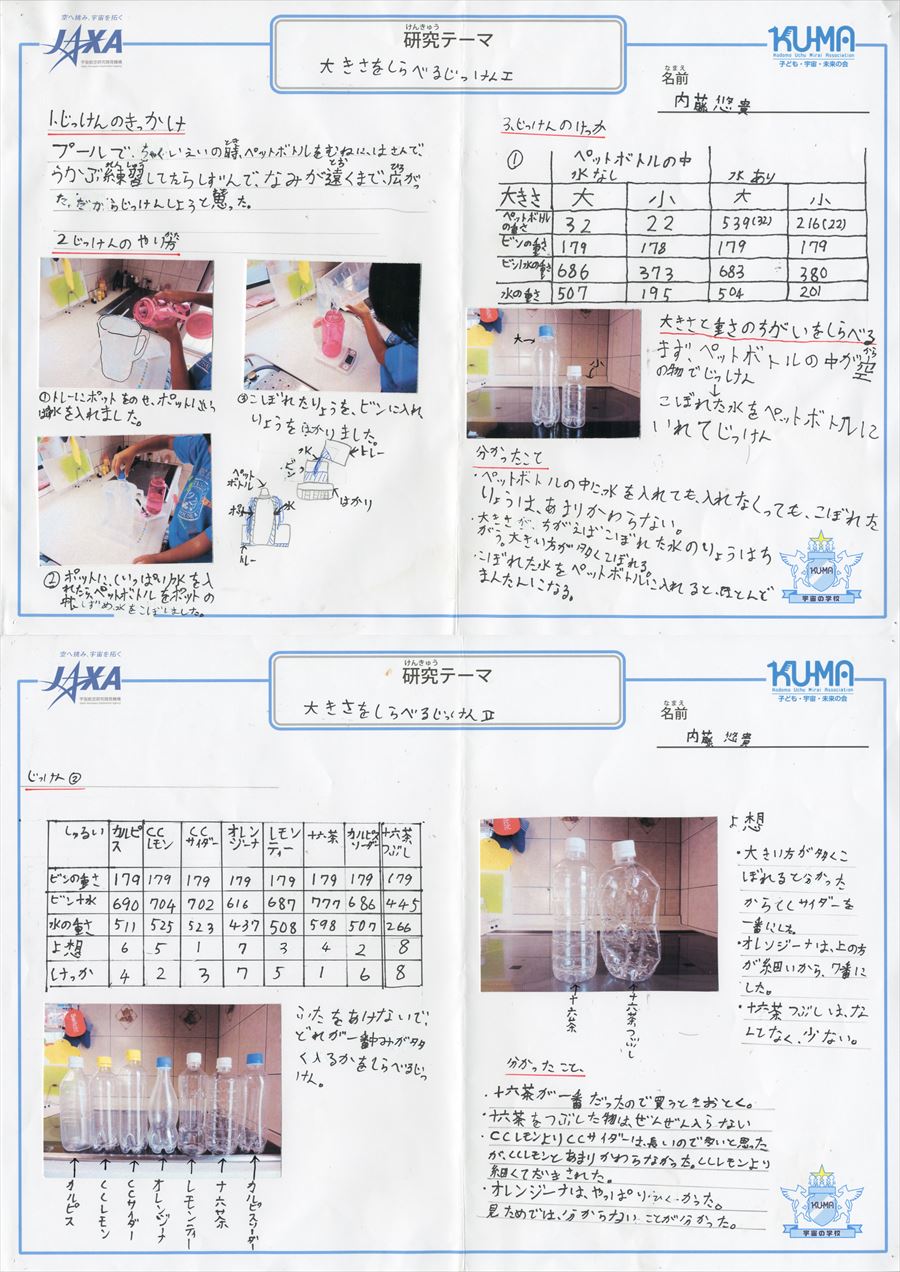 空へ挑み、宇宙を拓く
JAXA
宇宙航空研究開発機構
Japan Aerospace Exploration Agency
けんきゅう
研究テーマ
大きさをしらべるじっけんI
KUMA
Kodomo Uchu Mirai Association
子ども・宇宙・未来の会
なまえ
名前
内藤悠貴
1.じっけんのきっかけ
プールで、ちゃくいえいの時、ペットボトルをむねに、はさんで、
うかぶ練習してたらしずんで、なみが遠くまで、広がっ
た。だからじっけんしようと思った。
2じっけんのやり方
①トレーにポットをのせ、ポットにいっ
水を入れました。
③こぼれたりょうを、ビンに入れ
りょうをはかりました。
水
トレー
ビン
はかり
ペット
ボトル
水
トレー
②ポットに、いっぱい水を入
れたら、ペットボトルをポットの
しずめ、水をこぼしました。
3、じっけんのけっか
①
ペットボトルの中
水なし
水あり
大きさ 大 小 大 小
ペットボトルの重さ 32 22 539(32) 216(22)
ビンの重さ 179 178 179 179
ビン+水の重さ 686 373 683 380
水の重さ 507 195 504 201
大→
小
大きさと重さのちがいをしらべる
まず、ペットボトルの中が空
の物でじっけん
↓
こぼれた水をペットボトルに
いれてじっけん
分かったこと
・ペットボトルの中に水を入れても、入れなくっても、こぼれた
りょうは、あまりかわらない。
・大きさが、ちがえばこぼれた水のりょうはち
がう。大きい方が多くこぼれる。
・こぼれた水をペットボトルに入れると、ほとんど
まんたんになる。
KUMA
宇宙の学校
空へ挑み、宇宙を拓く
JAXA
宇宙航空研究開発機構
Japan Aerospace Exploration Agency
けんきゅう
研究テーマ
大きさをしらべるじっけんII
KUMA
Kodomo Uchu Mirai Association
子ども・宇宙・未来の会
なまえ
名前
内藤悠貴
じっけん②
しゅるい カルピス CCレモン CCサイダー オレンジーナ レモンティー 十六茶 カルピスソーダー 十六茶つぶし
ビンの重さ 179 179 179 179 179 179 179 179
ビン+水 690 704 702 616 687 777 686 445
水の重さ 511 525 523 437 508 598 507 266
よ想 6 5 1 7 3 4 2 8
けっか 4 2 3 7 5 1 6 8
ふたをあけないで、
どれが一番中みが多
く入るかをしらべるじっ
けん。
カルピス
CCレモン
CCサイダー
オレンジーナ
レモンティー
十六茶
カルピスソーダー
十六茶
十六茶つぶし
よ想
・大きい方が多くこ
ぼれると分かった
からCCサイダーを
一番にした。
・オレンジーナは、上の方
が細いから、7番に
した。
・十六茶つぶしは、なん
してなく、少ない。
分かったこと、
・十六茶が一番だったので買うときおとく。
・十六茶をつぶした物は、ぜんぜん入らない
・CCレモンよりCCサイダーは、長いので多いと思った
が、CCレモンとあまりかわらなかった。CCレモンより
細くてだまされた。
・オレンジーナは、やっぱり少なかった。
見ためでは、分からないことが分かった。
KUMA
宇宙の学校